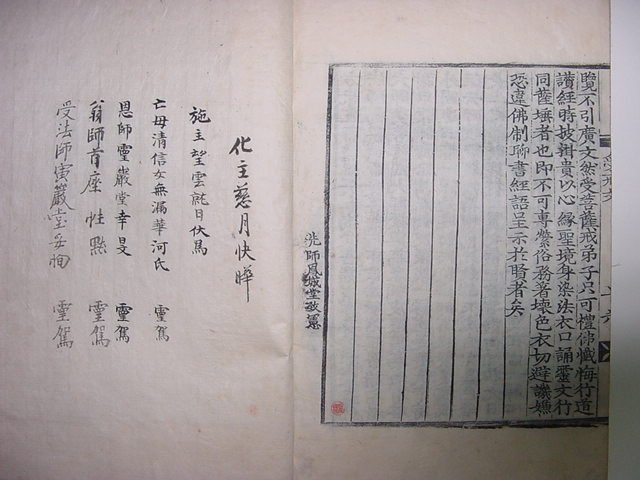 覽不引廣文然受菩薩戒弟子只可禮佛懺悔行道
讃經時披輯貴以心緣聖境身染法衣口誦靈文行
同薩埵者也卽不可專縈俗務著壞色衣切避譏嫌
恐違佛制聊書經語呈示於賢者矣
先師鳳城堂致憲
化主慈月快曄
施主望雲就日伏爲
亡母淸信女無漏華河氏 靈駕
恩師靈巖堂幸旻 靈駕
翁師首座性默 靈駕
受法師寅巖堂妥洵 靈駕